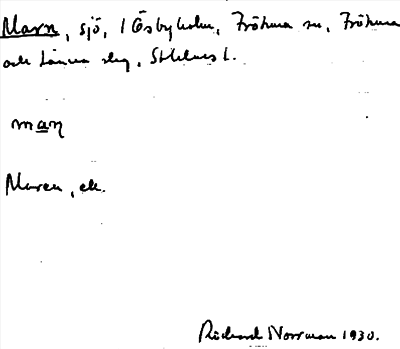 Marn, sjö, i Ösbyholm, Fröhuna sn, Fröhuna
och Länna slg, Sthlms l.
maṇ
Maren, ek.
Rickard Norrman 1930.